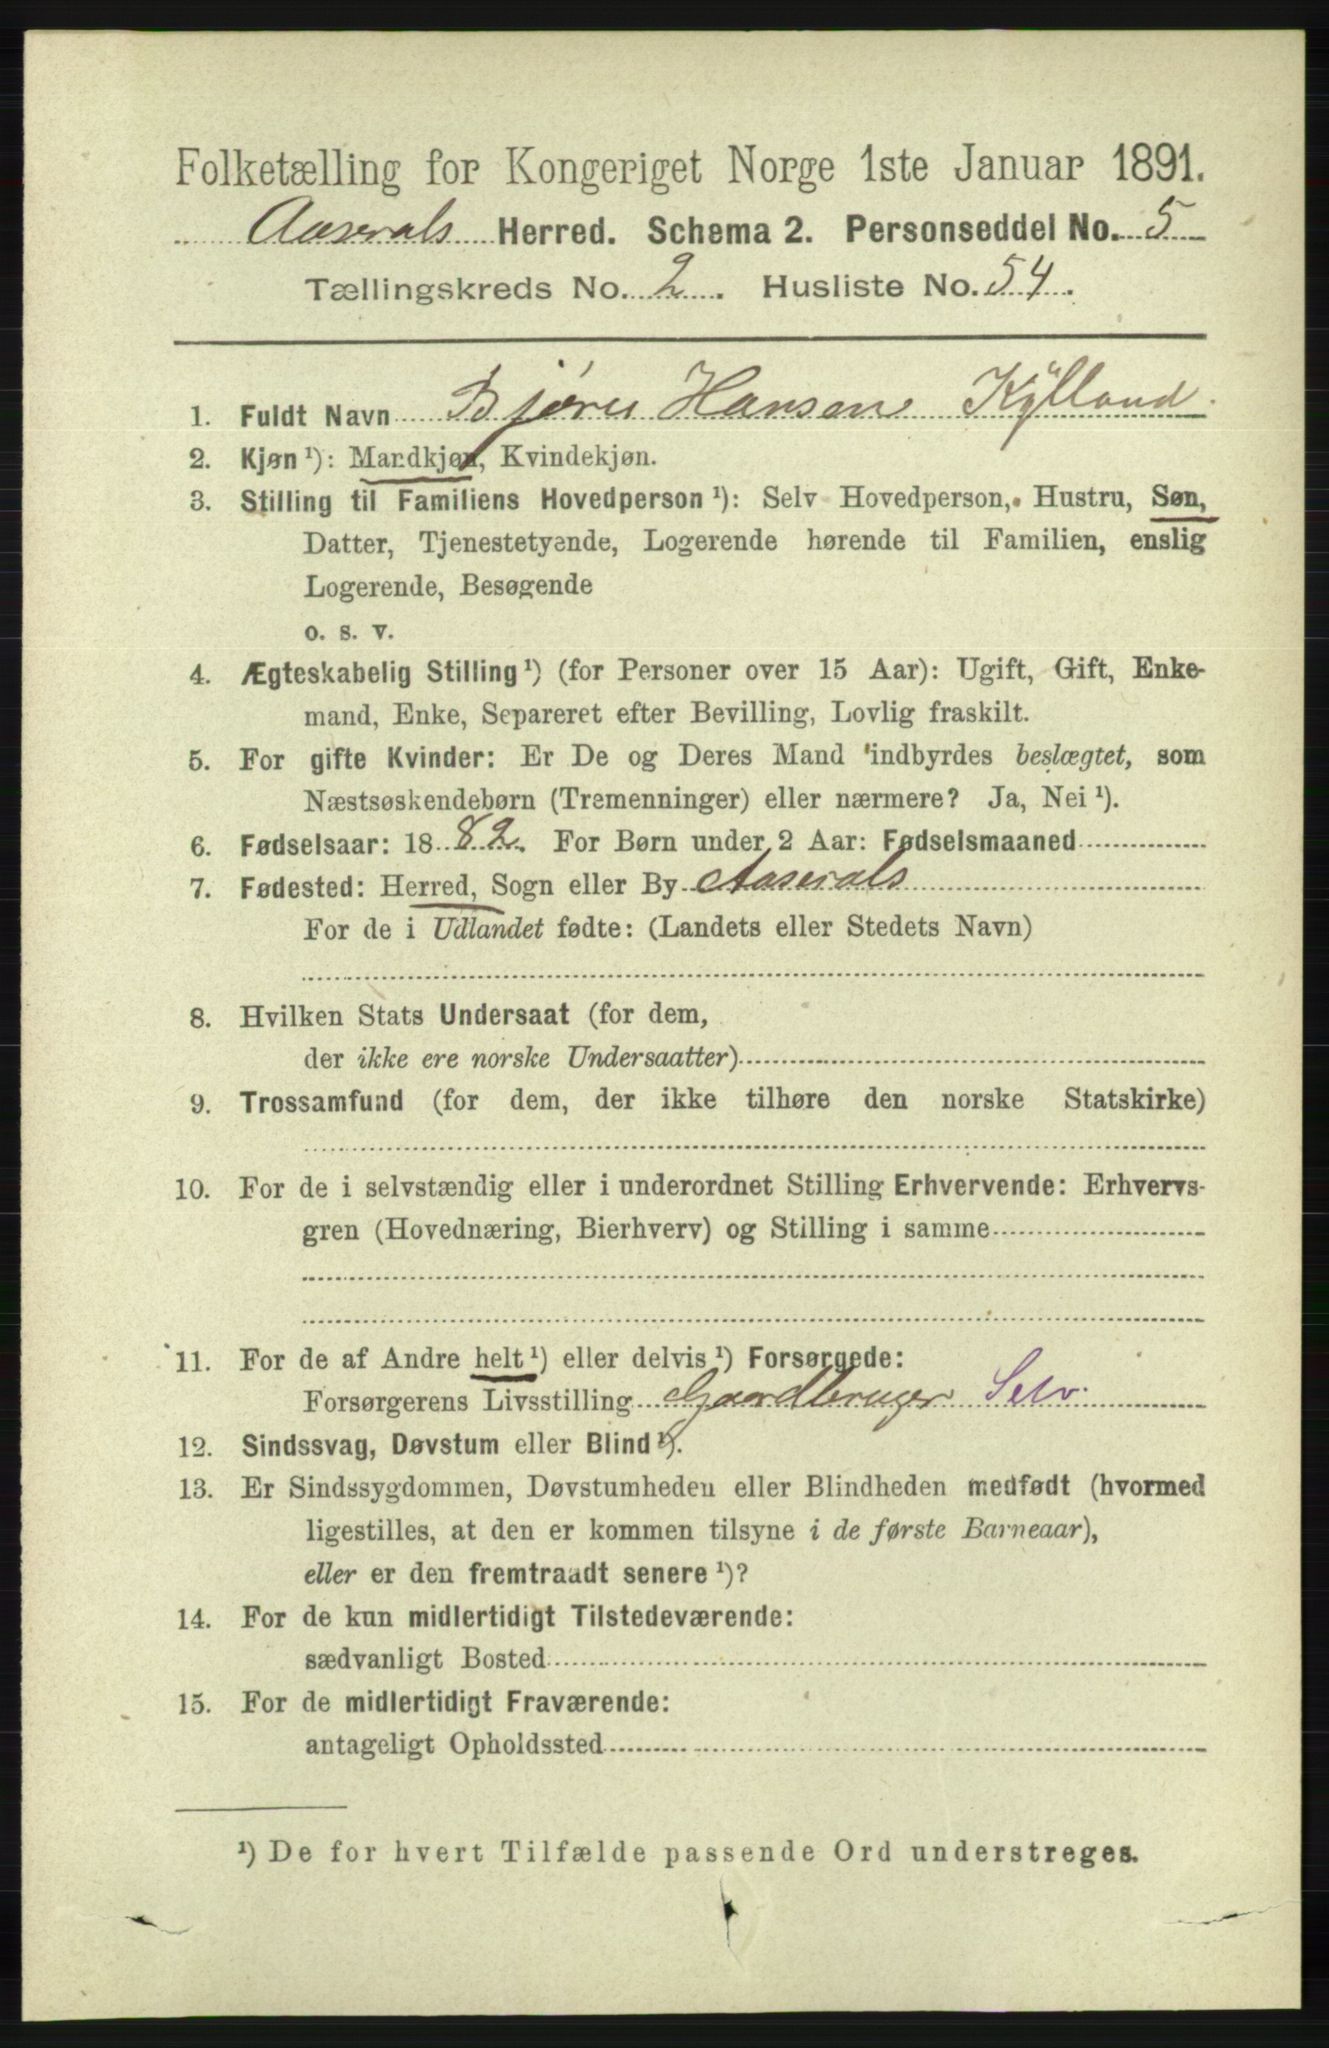 Folketælling for Kongeriget Norge 1ste Januar 1891.
Aaserals Herred. Schema 2. Personseddel No. 5
Tællingskreds No. 2. Husliste No. 54.
1. Fuldt Navn Bjørn Hansen Kylland.
2. Kjøn ¹): Mandkjøn, Kvindekjøn.
3. Stilling til Familiens Hovedperson ¹): Selv Hovedperson, Hustru, Søn,
Datter, Tjenestetyende, Logerende hørende til Familien, enslig
Logerende, Besøgende
o. s. v.
4. Ægteskabelig Stilling ¹) (for Personer over 15 Aar): Ugift, Gift, Enke-
mand, Enke, Separeret efter Bevilling, Lovlig fraskilt.
5. For gifte Kvinder: Er De og Deres Mand indbyrdes beslægtet, som
Næstsøskendebørn (Tremenninger) eller nærmere? Ja, Nei ¹).
6. Fødselsaar: 1882. For Børn under 2 Aar: Fødselsmaaned
7. Fødested: Herred, Sogn eller By Aaserals
For de i Udlandet fødte: (Landets eller Stedets Navn)
8. Hvilken Stats Undersaat (for dem,
der ikke ere norske Undersaatter)
9. Trossamfund (for dem, der ikke tilhøre den norske Statskirke)
10. For de i selvstændig eller i underordnet Stilling Erhvervende: Erhvervs-
gren (Hovednæring, Bierhverv) og Stilling i samme
11. For de af Andre helt ¹) eller delvis ¹) Forsørgede:
Forsørgerens Livsstilling Gaardbruger Selv.
12. Sindssvag, Døvstum eller Blind ¹).
13. Er Sindssygdommen, Døvstumheden eller Blindheden medfødt (hvormed
ligestilles, at den er kommen tilsyne i de første Barneaar),
eller er den fremtraadt senere ¹)?
14. For de kun midlertidigt Tilstedeværende:
sædvanligt Bosted
15. For de midlertidigt Fraværende:
antageligt Opholdssted
¹) De for hvert Tilfælde passende Ord understreges.